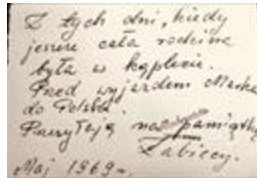 Z tych dni, kiedy
jeszcze cała rodzina
była w komplecie.
Przed wyjazdem Marka
do Polski.
Przesyłają na pamiątkę
Żabiccy.
Maj 1969 r.